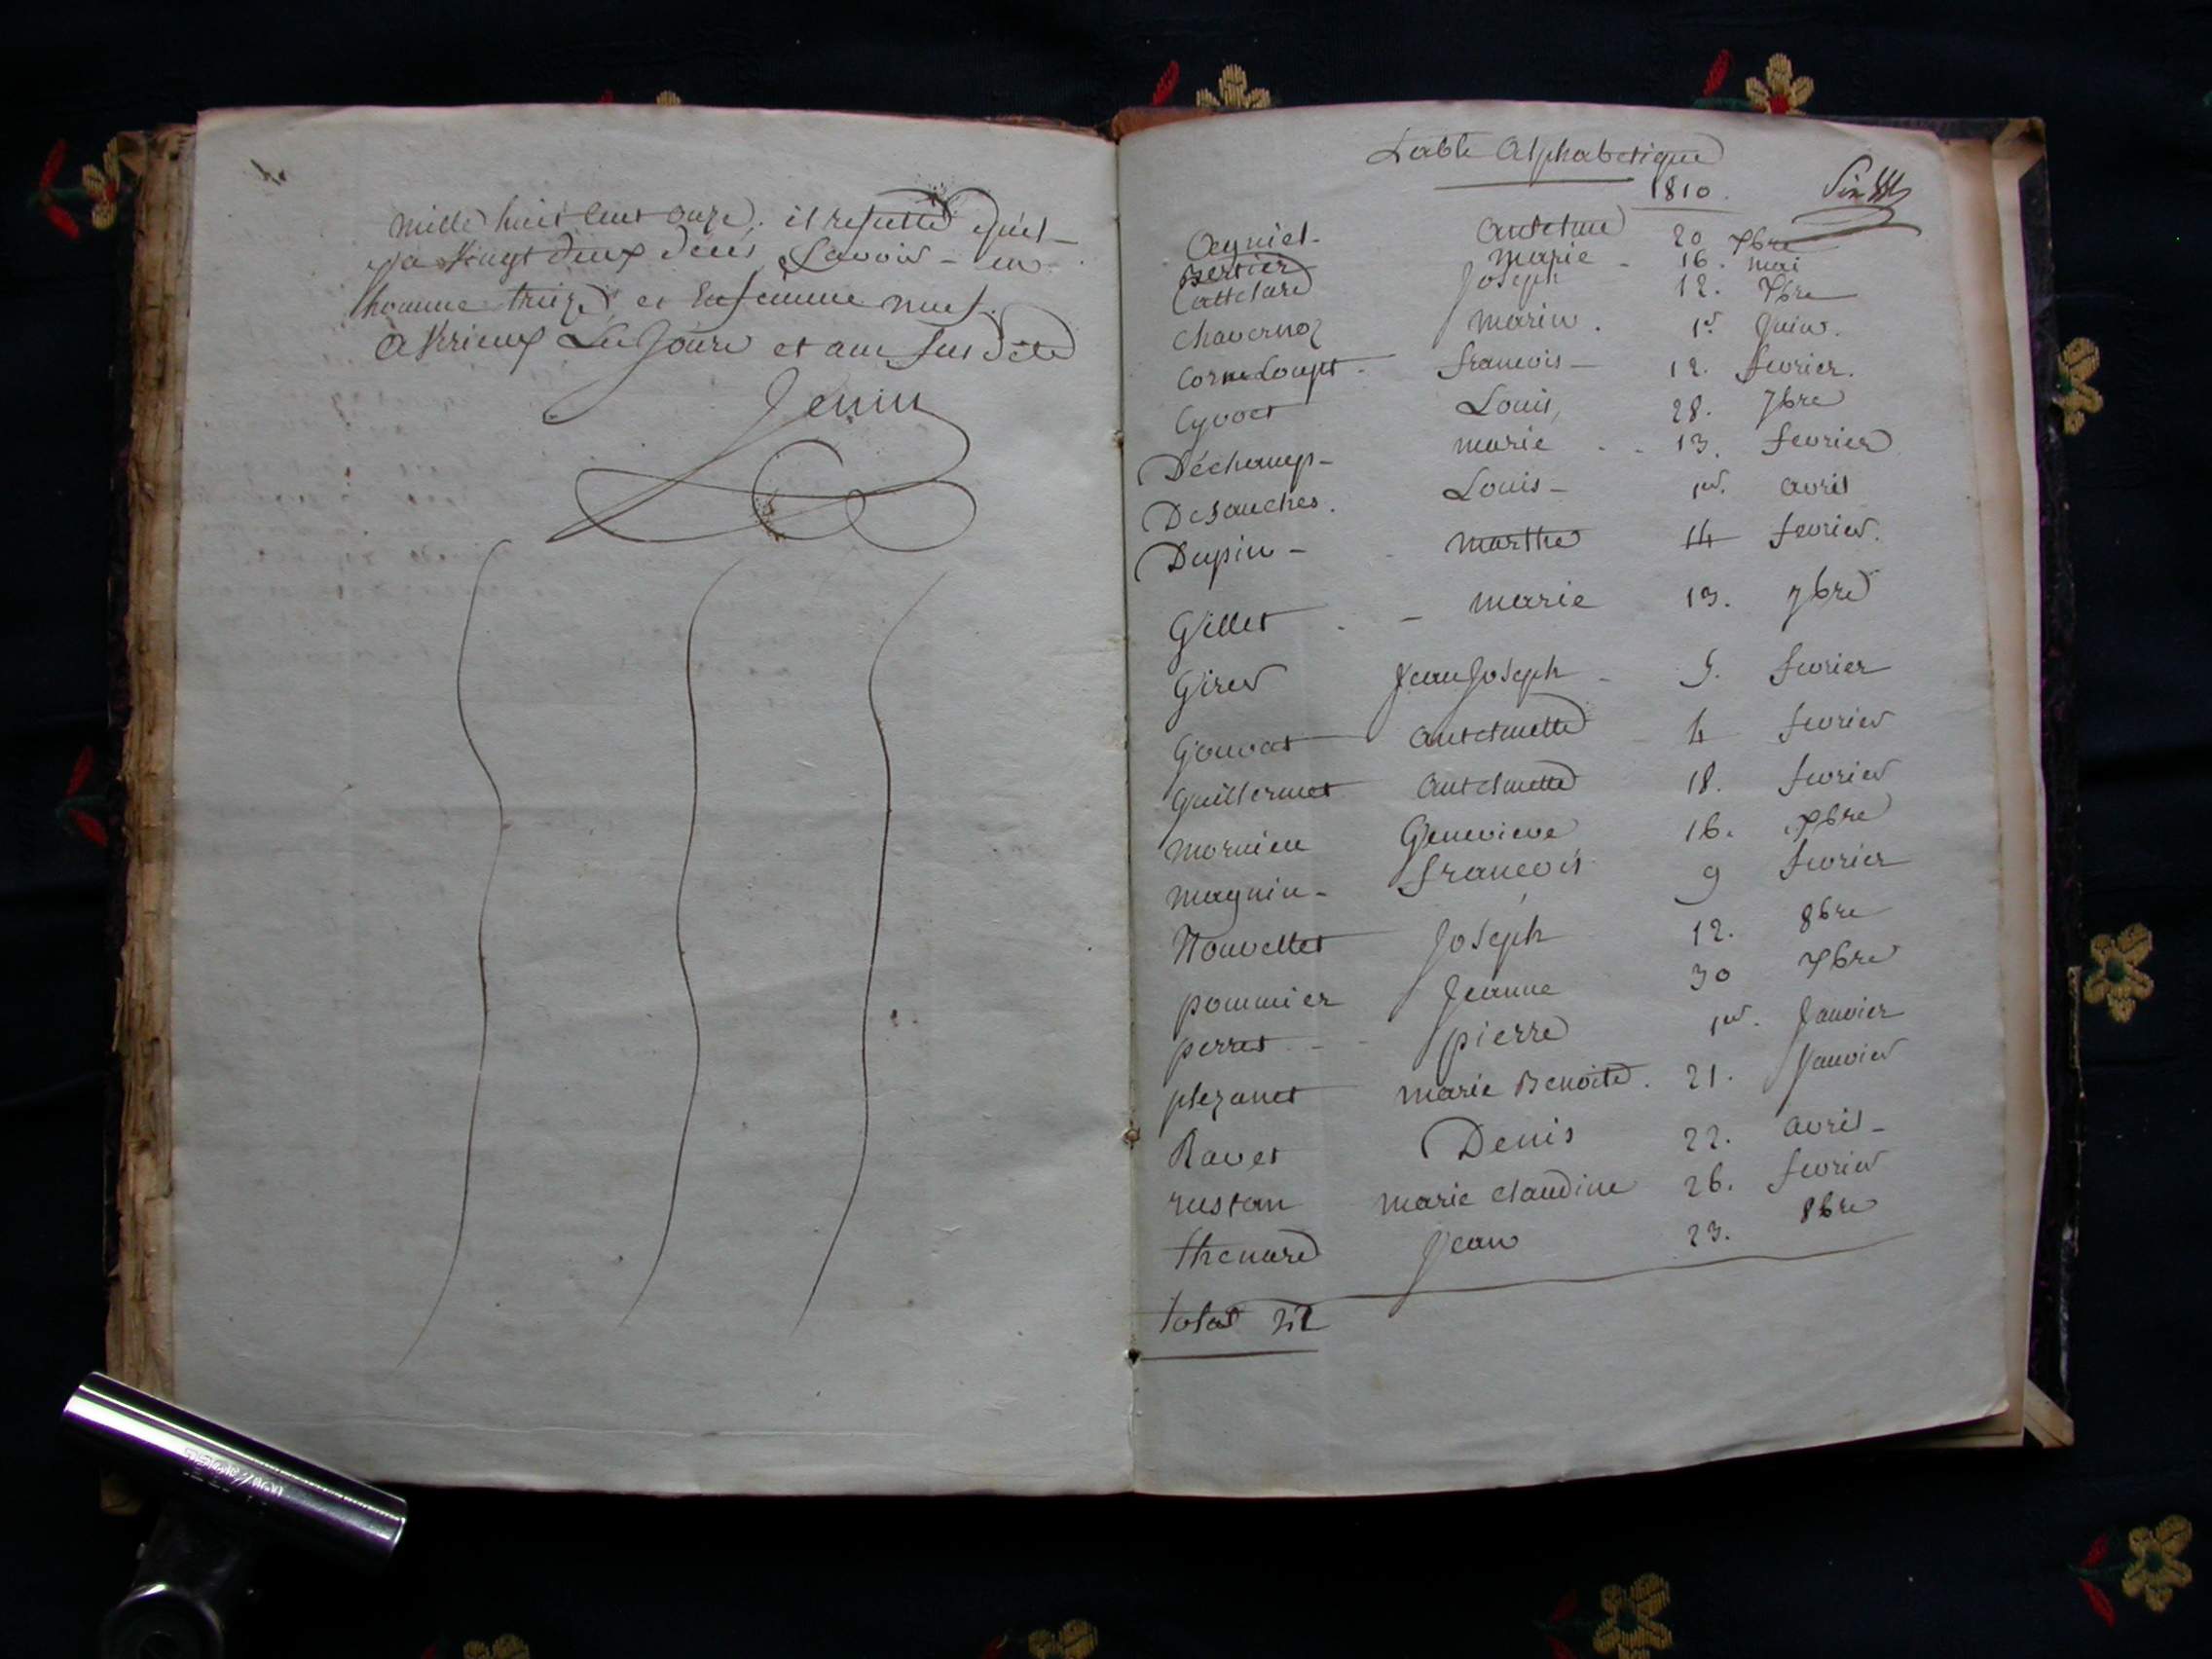 mille huit cent onze. il resulte qu'il
y a Vingt deux décès, Savoir - en
homme treize et En femme neuf.
a Virieux Les Jour et an Susdite
Jenin
Table Alphabetique
1810.
Ayniel - antelme 20 7bre
Bertier marie - 16. mai
Cattelard Joseph 12. 7bre
Chavernoz marin. 1er Juin.
Corneloupt - francois - 12. fevrier.
Cyvoct Louis, 28. 7bre
Déchamp - marie - - 13. fevrier
Desauches. Louis - 1er. avril
Dupin - - marthe 14 fevrier.
Gillet - - marie 13. 7bre
Girer Jean Joseph - 5. fevrier
Gouvat antelmette - 4 fevrier
Guillermet antelmette 18. fevrier
mornieu Genevieve 16. 7bre
magnin - francois 9 fevrier
Nouvellet Joseph 12. 8bre
pommier Jeanne 30 7bre
perret - - pierre 1er. Janvier
plezanet marie Benoite. 21. Janvier
Ravet Denis 22. avril -
rustan marie claudine 26. fevrier
thenard Jean 23. 8bre
total 22